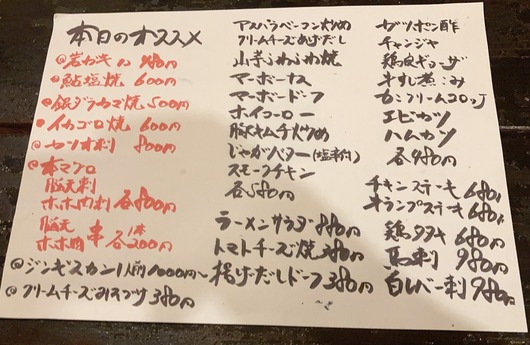 本日のオススメ
◎岩ガキ 1コ 480円
◎鮎塩焼 600円
◎銀ダラカマ焼 500円
●イカゴロ焼 600円
◎カツオ刺 800円
◎本マグロ
脳天刺
ホホ肉刺 各800円
脳天
ホホ肉 串 各1本200円
◎ジンギスカン1人前1000円~
◎クリームチーズみそづけ 380円
アスパラベーコン炒め
クリームチーズあげだし
山芋ふわふわ焼
マーボーナス
マーボードーフ
ホイコーロー
豚キムチ炒め
じゃがバター(塩辛付)
スモークチキン
各580円
ラーメンサラダ 880円
トマトチーズ焼 380円
揚げだしドーフ 380円
ガツポン酢
チャンジャ
鶏皮ギョーザ
牛すじ煮込み
カニクリームコロッケ
エビカツ
ハムカツ
各480円
チキンステーキ 680円
牛ランプステーキ 680円
鶏タタキ 680円
馬刺 980円
白レバー刺 980円